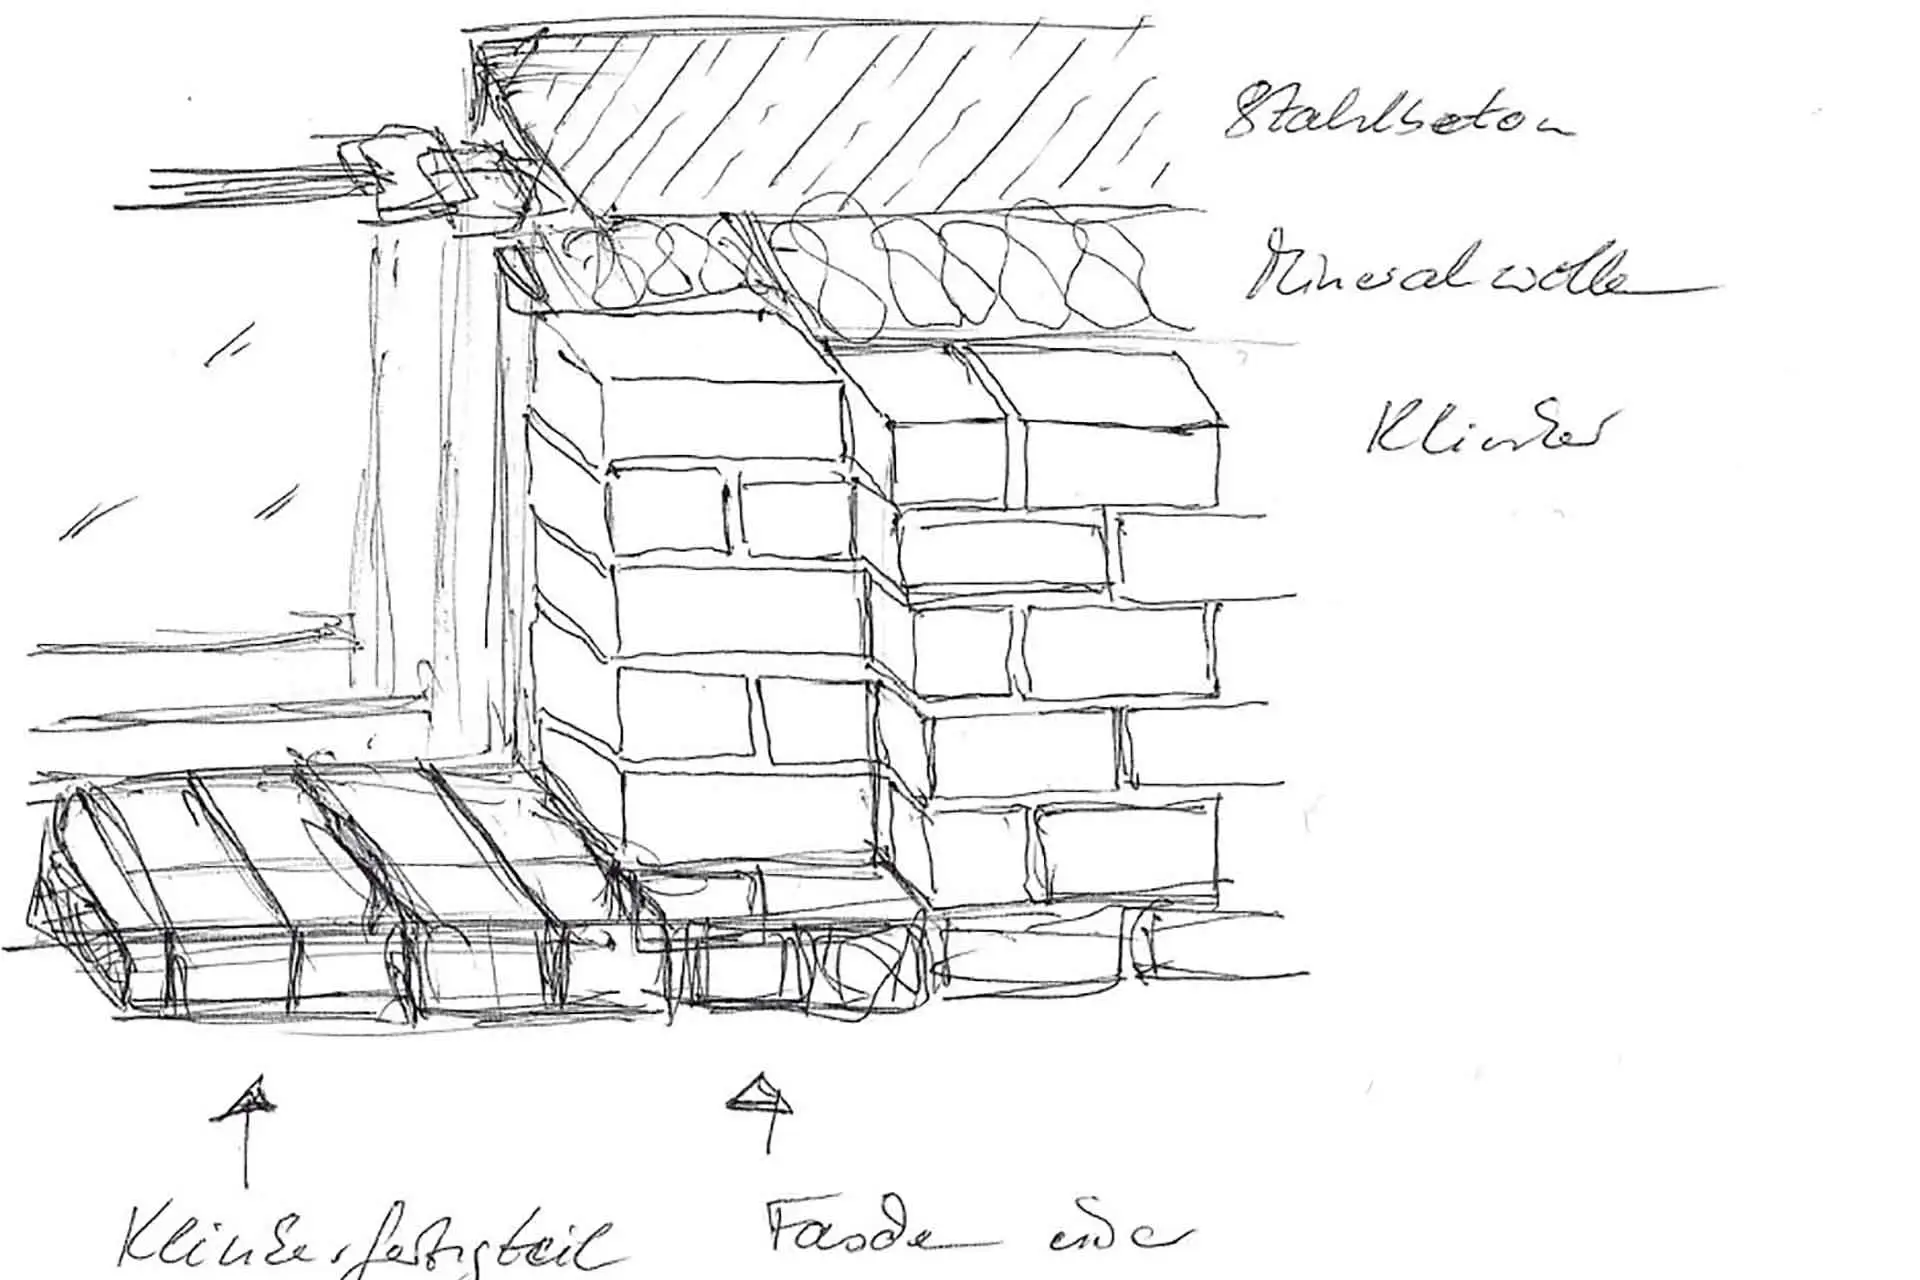 Stahlbeton
Mineralwolle
Klinker
Klinkerfertigteil
Fasade oder